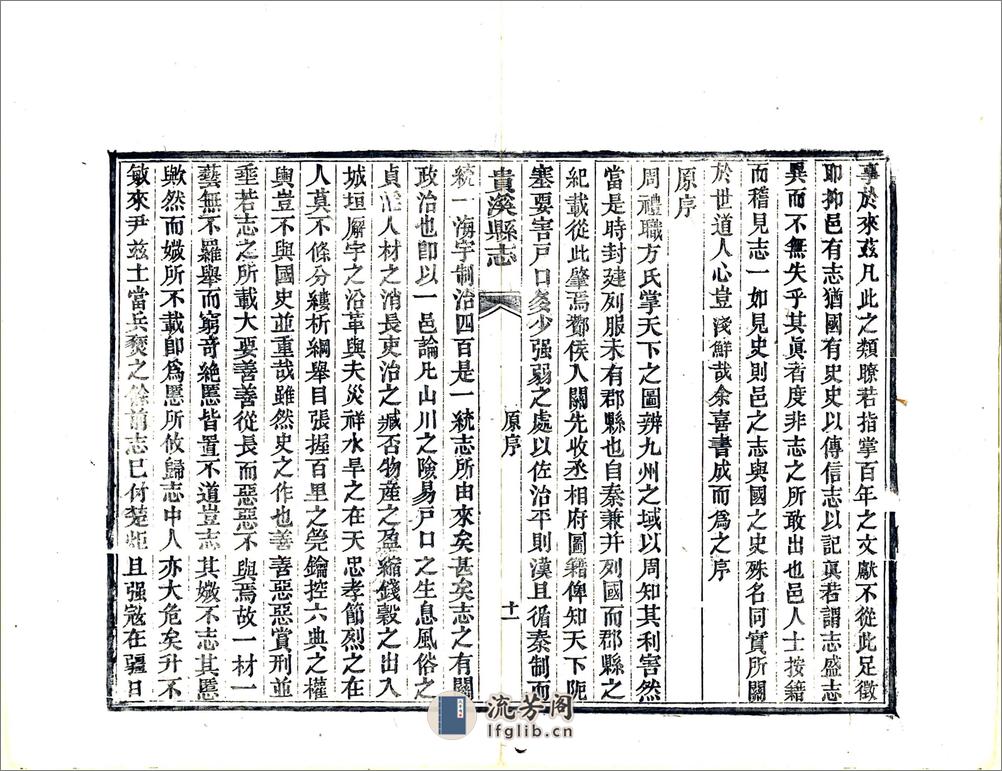 事於來茲凡此之類瞭若指掌百年之文獻不從此足徵
耶抑邑有志猶國有史史以傳信志以記真若謂志盛志
異而不無失乎其眞者度非志之所敢出也邑人士按籍
而稽見志一如見史則邑之志與國之史殊名同實所關
於世道人心豈淺鮮哉余喜書成而爲之序
原序
周禮職方氏掌天下之圖辨九州之域以周知其利害然
當是時封建列服未有郡縣也自秦兼并列國而郡縣之
紀載從此肇焉酇侯入關先收丞相府圖籍俾知天下阨
塞要害戸口多少强弱之處以佐治平則漢且循秦制而
貴溪縣志
原序
十一
統一海宇制治四百是一統志所由來矣甚矣志之有關
政治也卽以一邑論凡山川之險易戸口之生息風俗之
貞淫人材之消長吏治之臧否物産之盈縮錢穀之出入
城垣廨宇之沿革與夫災祥水旱之在天忠孝節烈之在
人莫不條分縷析綱舉目張握百里之筦鑰控六典之權
輿豈不與國史並重哉雖然史之作也善善惡惡賞刑並
垂若志之所載大要善善從長而惡惡不與焉故一材一
藝無不羅舉而窮奇絶慝皆置不道豈志其媺不志其慝
歟然而媺所不載卽爲慝所攸歸志中人亦大危矣升不
敏來尹兹土當兵燹之餘前志已付楚炬且强寇在疆日
流芳阁
lfglib.cn